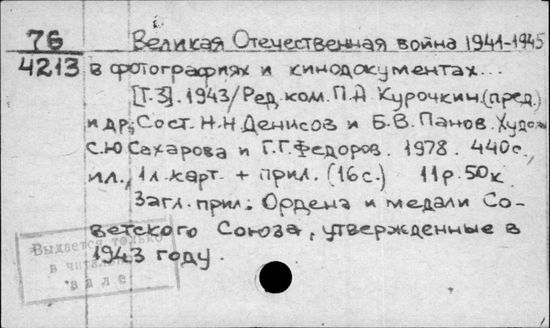 76 Великая Отечественная война 1941-1945
4213 в фотографиях и кинодокументах...
[Т.3]. 1943/Ред.ком. П.А. Курочкин (пред.)
и др; Сост. Н.Н Денисов и Б.В. Панов. Худож
С.Ю Сахарова и Г.Г. Федоров. 1978. 440с.
ил., 1л.карт. + прил. (16с.) 11р.50к
Загл. прил.: Ордена и медали Со-
ветского Союза, утвержденные в
1943 году.
Выдается только
в читальном
зале